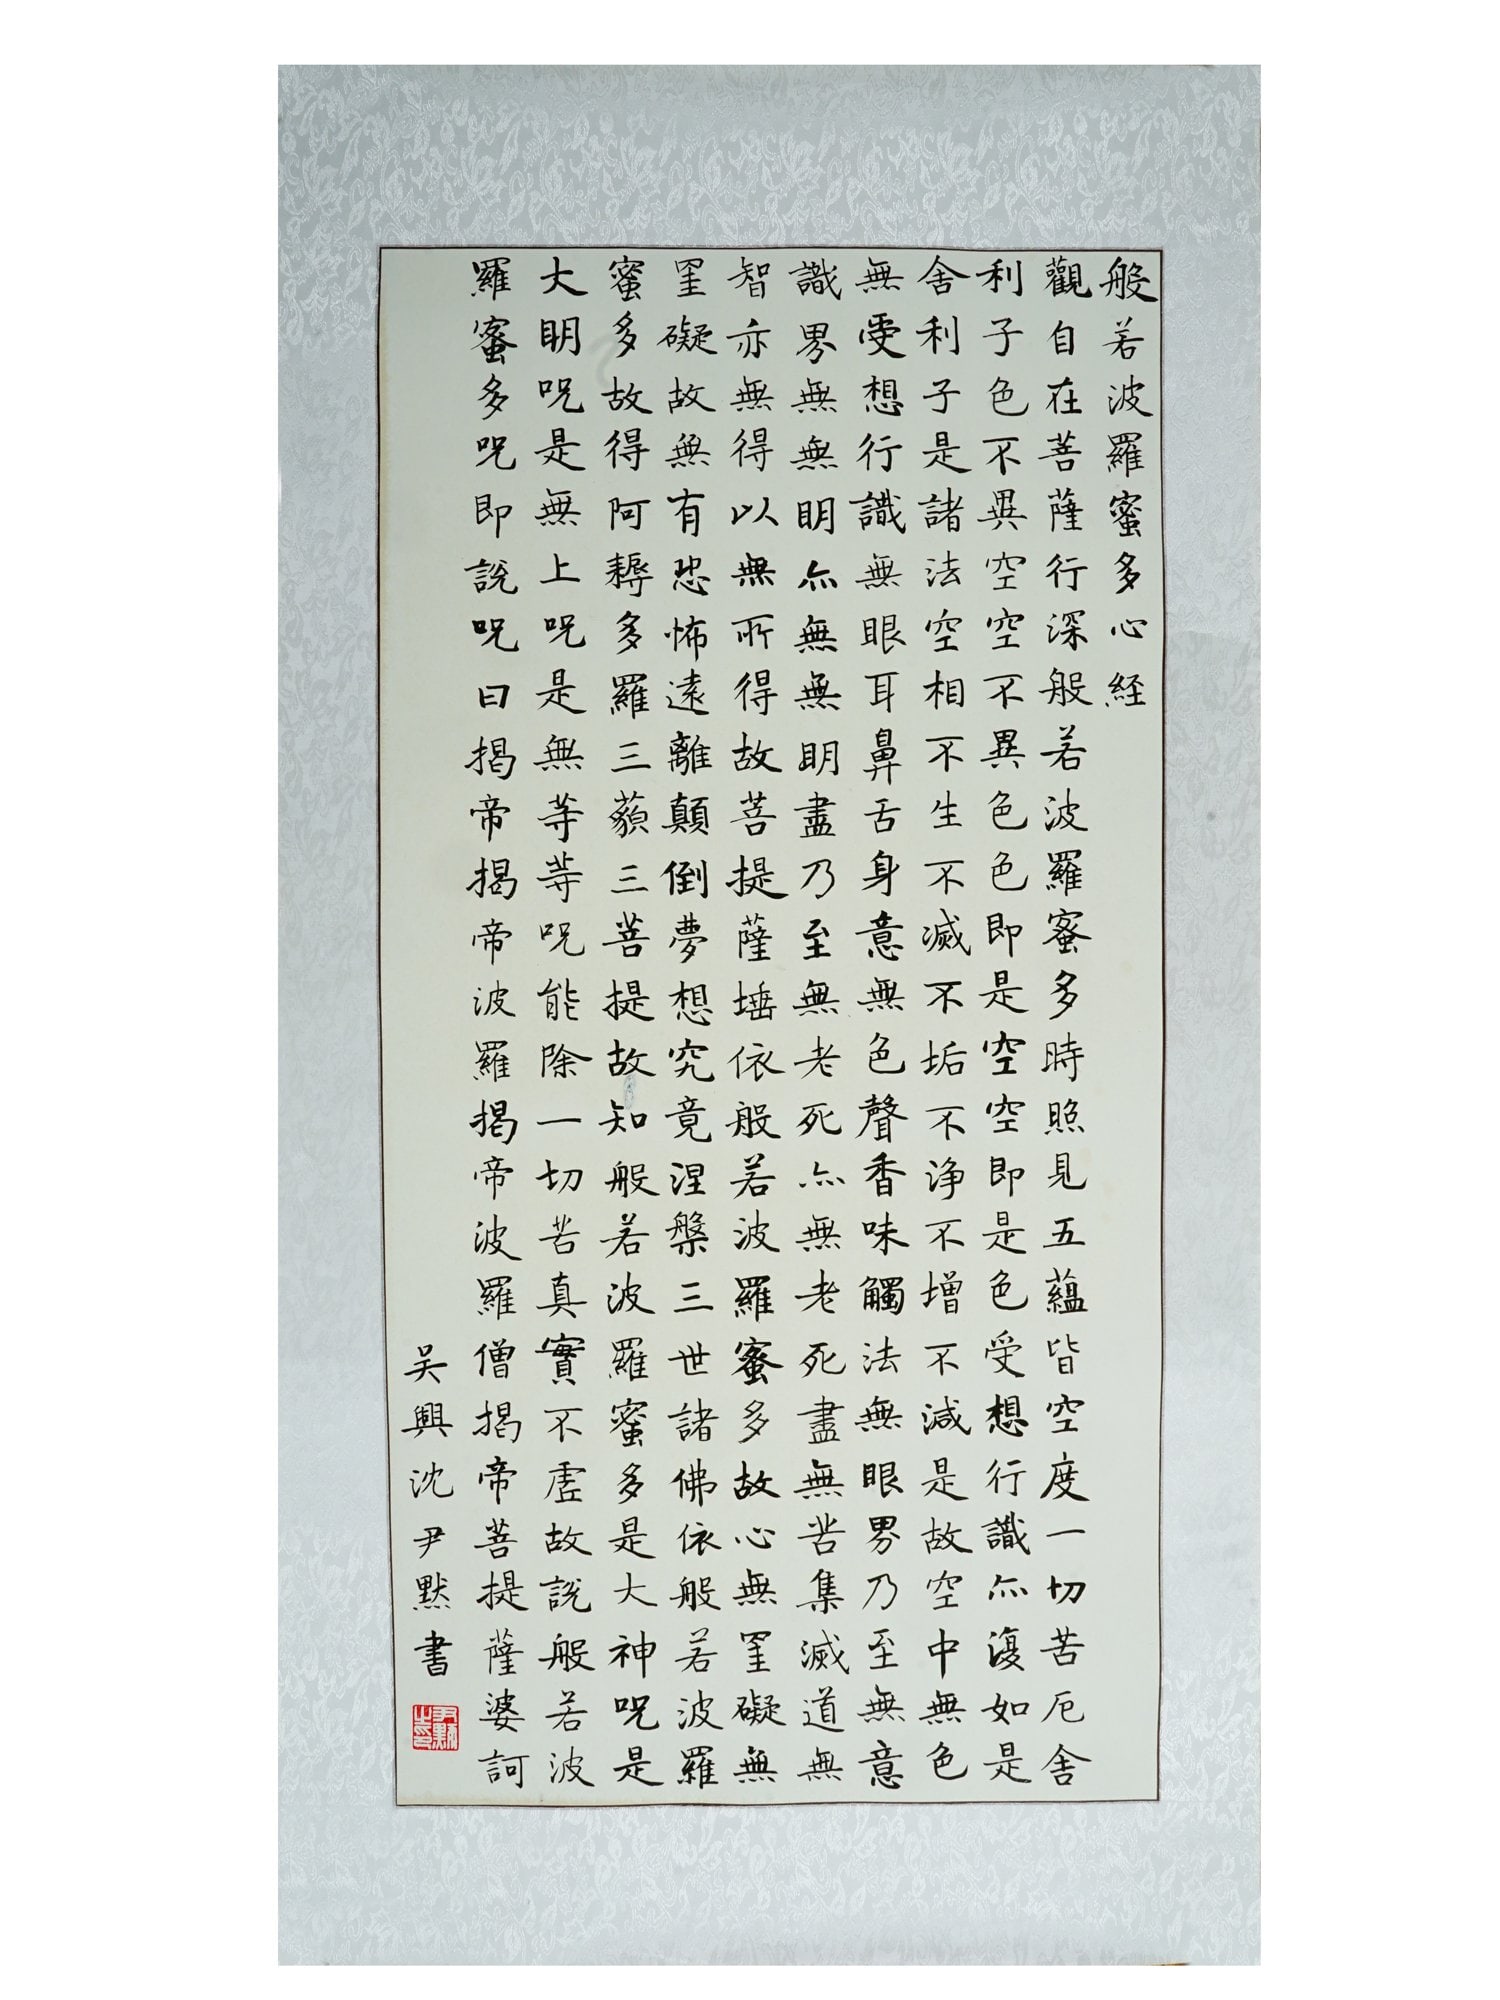 般若波羅蜜多心経
觀自在菩薩行深般若波羅蜜多時照見五蘊皆空度一切苦厄舍
利子色不異空空不異色色即是空空即是色受想行識亦復如是
舍利子是諸法空相不生不滅不垢不浄不增不減是故空中無色
無受想行識無眼耳鼻舌身意無色聲香味觸法無眼界乃至無意
識界無無明亦無無明盡乃至無老死亦無老死盡無苦集滅道無
智亦無得以無所得故菩提薩埵依般若波羅蜜多故心無罣礙無
罣礙故無有恐怖遠離顛倒夢想究竟涅槃三世諸佛依般若波羅
蜜多故得阿耨多羅三藐三菩提故知般若波羅蜜多是大神呪是
大明呪是無上呪是無等等呪能除一切苦真實不虛故説般若波
羅蜜多呪即説呪曰揭帝揭帝波羅揭帝波羅僧揭帝菩提薩婆訶
吴興沈尹默書
尹默之印